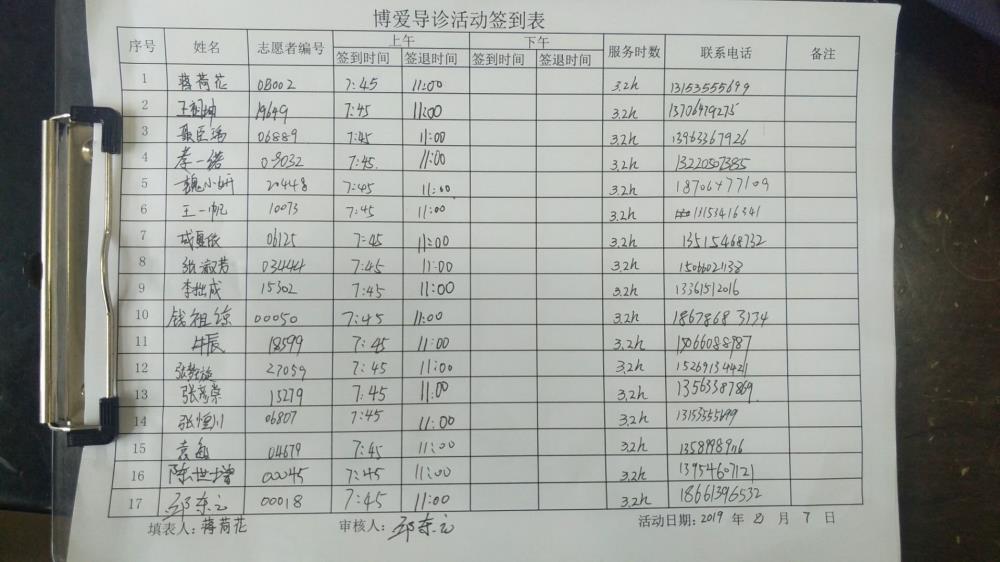 博爱导诊活动签到表
序号 姓名 志愿者编号 上午 下午 服务时数 联系电话 备注
签到时间 签退时间 签到时间 签退时间
1 蒋荷花 0B002 7:45 11:00 3.2h 13153555699
2 19649 7:45 11:00 3.2h 13706479275
3 聂臣瑀 06889 7:45 11:00 3.2h 13963367926
4 李一诺 09032 7:45 11:00 3.2h 13220507385
5 魏小妍 20448 7:45 11:00 3.2h 18706477109
6 王一帆 10073 7:45 11:00 3.2h 13153416341
7 06125 7:45 11:00 3.2h 13515468732
8 张淑芳 03444 7:45 11:00 3.2h 15066021138
9 李拙成 15302 7:45 11:00 3.2h 13361512016
10 钱祖琼 00050 7:45 11:00 3.2h 18678683134
11 牛辰 18599 7:45 11:00 3.2h 15066088987
12 27059 7:45 11:00 3.2h 15269134421
13 张彦荣 15279 7:45 11:00 3.2h 13563387869
14 张恒川 06807 7:45 11:00 3.2h 13153555699
15 04679 7:45 11:00 3.2h
16 陈世增 00045 7:45 11:00 3.2h 13954607121
17 邱东立 00018 7:45 11:00 3.2h 18661396532
填表人：蒋荷花 审核人：邱东立 活动日期：2019 年 8 月 7 日